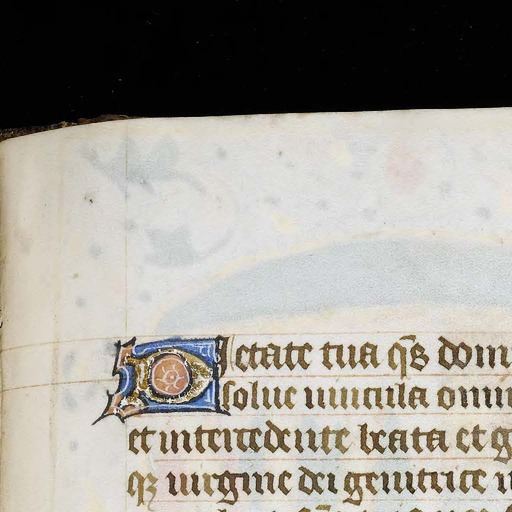 Pietate tua q̄s dom
solue uincula omn
et intercedente beata et g
q₃ uirgine dei genitrice